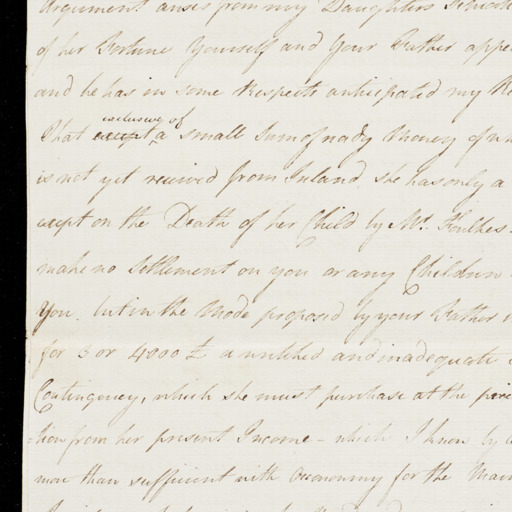 Argument arises from my Daughters
of her Fortune Yourself and Your Father appe
and he has in some Respects anticipated my Re
exclusive of
That except a small Sum of ready Money of w
is not yet received from Ireland. She has only a
except on the Death of her Child by Mr. Foulkes
make no Settlement on you or any Children
You. but in the Mode proposed by your Father
for 3 or 4000 £ a and inadequate
Contingency, which she must purchase at the
tion from her present Income - which I know by
more than sufficient with Oeconomy for the Main